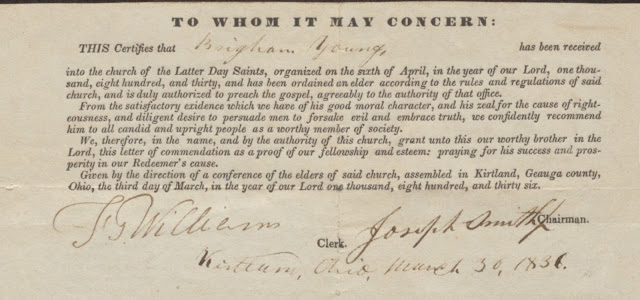 TO WHOM IT MAY CONCERN:
THIS Certifies that Brigham Young, has been received
into the church of the Latter Day Saints, organized on the sixth of April, in the year of our Lord, one thou-
sand, eight hundred, and thirty, and has been ordained an elder according to the rules and regulations of said
church, and is duly authorized to preach the gospel, agreeably to the authority of that office.
From the satisfactory evidence which we have of his good moral character, and his zeal for the cause of right-
eousness, and diligent desire to persuade men to forsake evil and embrace truth, we confidently recommend
him to all candid and upright people as a worthy member of society.
We, therefore, in the name, and by the authority of this church, grant unto this our worthy brother in the
Lord, this letter of commendation as a proof of our fellowship and esteem: praying for his success and pros-
perity in our Redeemer's cause.
Given by the direction of a conference of the elders of said church, assembled in Kirtland, Geauga county,
Ohio, the third day of March, in the year of our Lord one thousand, eight hundred, and thirty six.
F G Williams Clerk. Joseph Smith Chairman.
Kirtland, Ohio, March 30, 1836.